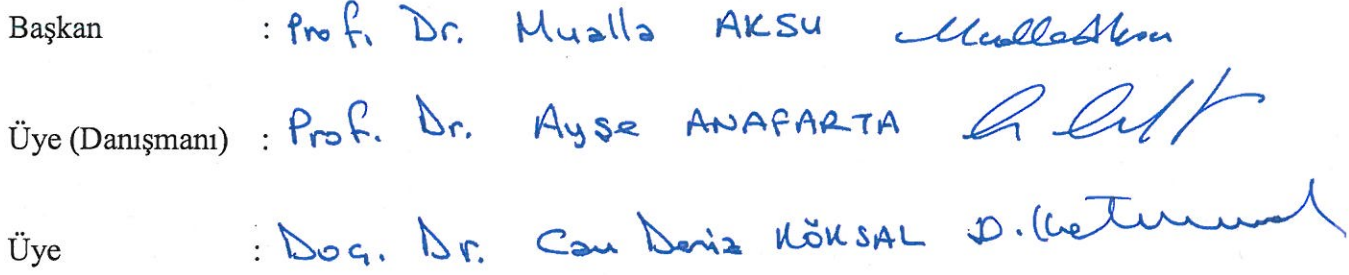 Başkan : Prof. Dr. Mualla AKSU
Üye (Danışmanı) : Prof. Dr. Ayşe ANAFARTA
Üye : Doç. Dr. Can Deniz KÖKSAL